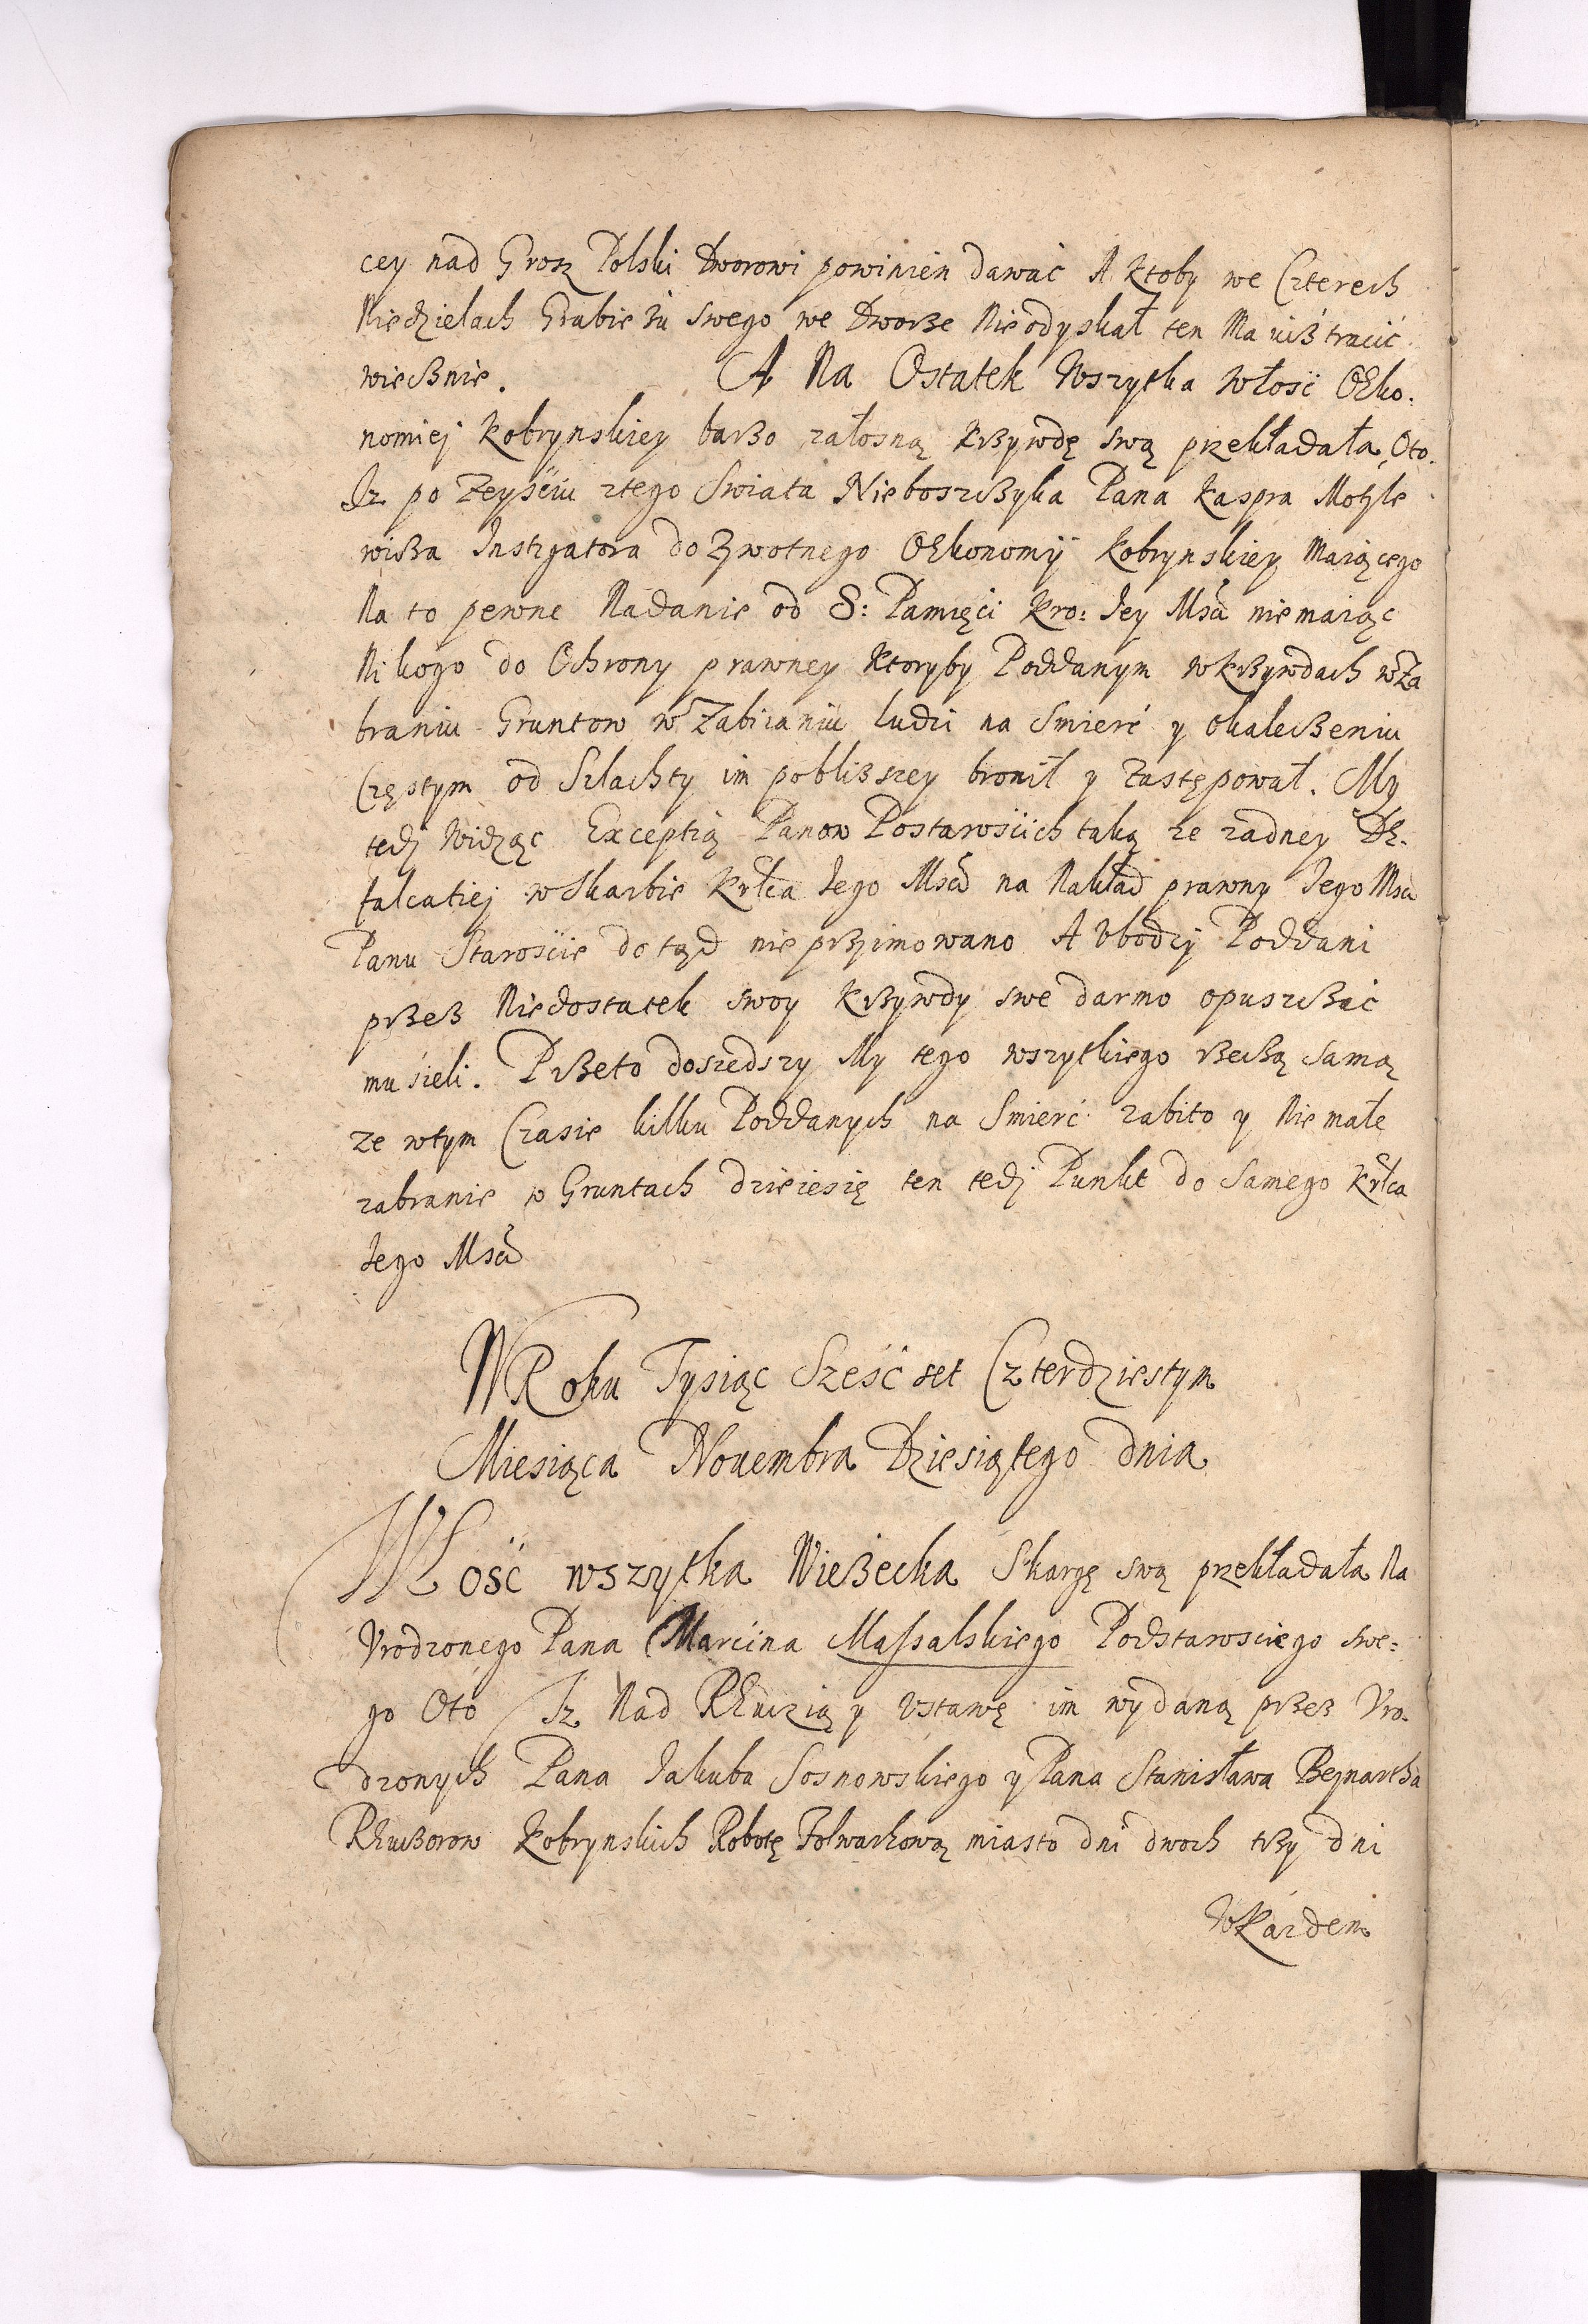 cey nad Grosz Polski Dworowi powinien dawać A ktoby we Czterech
Niedzielach Grabieżu swego we Dworze Nieodyskał ten Ma iuż tracić
wiecznie. A Na Ostatek Wszytka Włość Oeko:
nomiej Kobrynskiey barzo załosną krzywdę swą przekładała, Oto.
Iz po Zeyściu ztego Swiata Nieboszczyka Pana Kaspra Motyle
wicza Instigatora do Zywotnego Oekonomÿ Kobrynskiey Maiącego
Na to pewne Nadanie od S: Pamięci Kro: Jey Mści nie maiąc
Nikogo do Ochrony prawney ktoryby Poddanym w krzywdach w Za
braniu Gruntow w Zabiianiu ludzi na Smierć y Okaleczeniu
Częstym od Szlachty im pobliższey bronił y zastępował. My
tedj Widząc Exceptią Panow Postarościch taką ze zadney De-
falcatiej w Skarbie Krlca Jego Mści na Nakład prawny Jego Mści
Panu Staroście do tąd nie przimowano A Vbodzy Poddani
przez Niedostatek swoy krzywdy swe darmo opuszczać
musieli. Przeto doszedszy My tego wszytkiego rzeczą samą
ze w tym Czasie kilku Poddanych na Smierć zabito y Nie małe
zabranie w Gruntach dzieiesię ten tedj Punkt do Samego Krlca
Jego Mści
W Roku Tysiąc Sześć set Czterdziestym
Miesiąca Nouembra Dziesiątego dnia
Włość wszytka Wieżecka Skargę swą przekładała Na
Vrodzonego Pana Marcina Massalskiego Podstarosciego swe:
go Oto Iz Nad REwizią y Vstawę im wydaną przez Vro-
dzonych Pana Jakuba Sosnowskiego y Pana Stanisława Beynartha
REwizorow Kobrynskich Robotę Folwarkową miasto dni dwoch trzy dni
W Kazdem